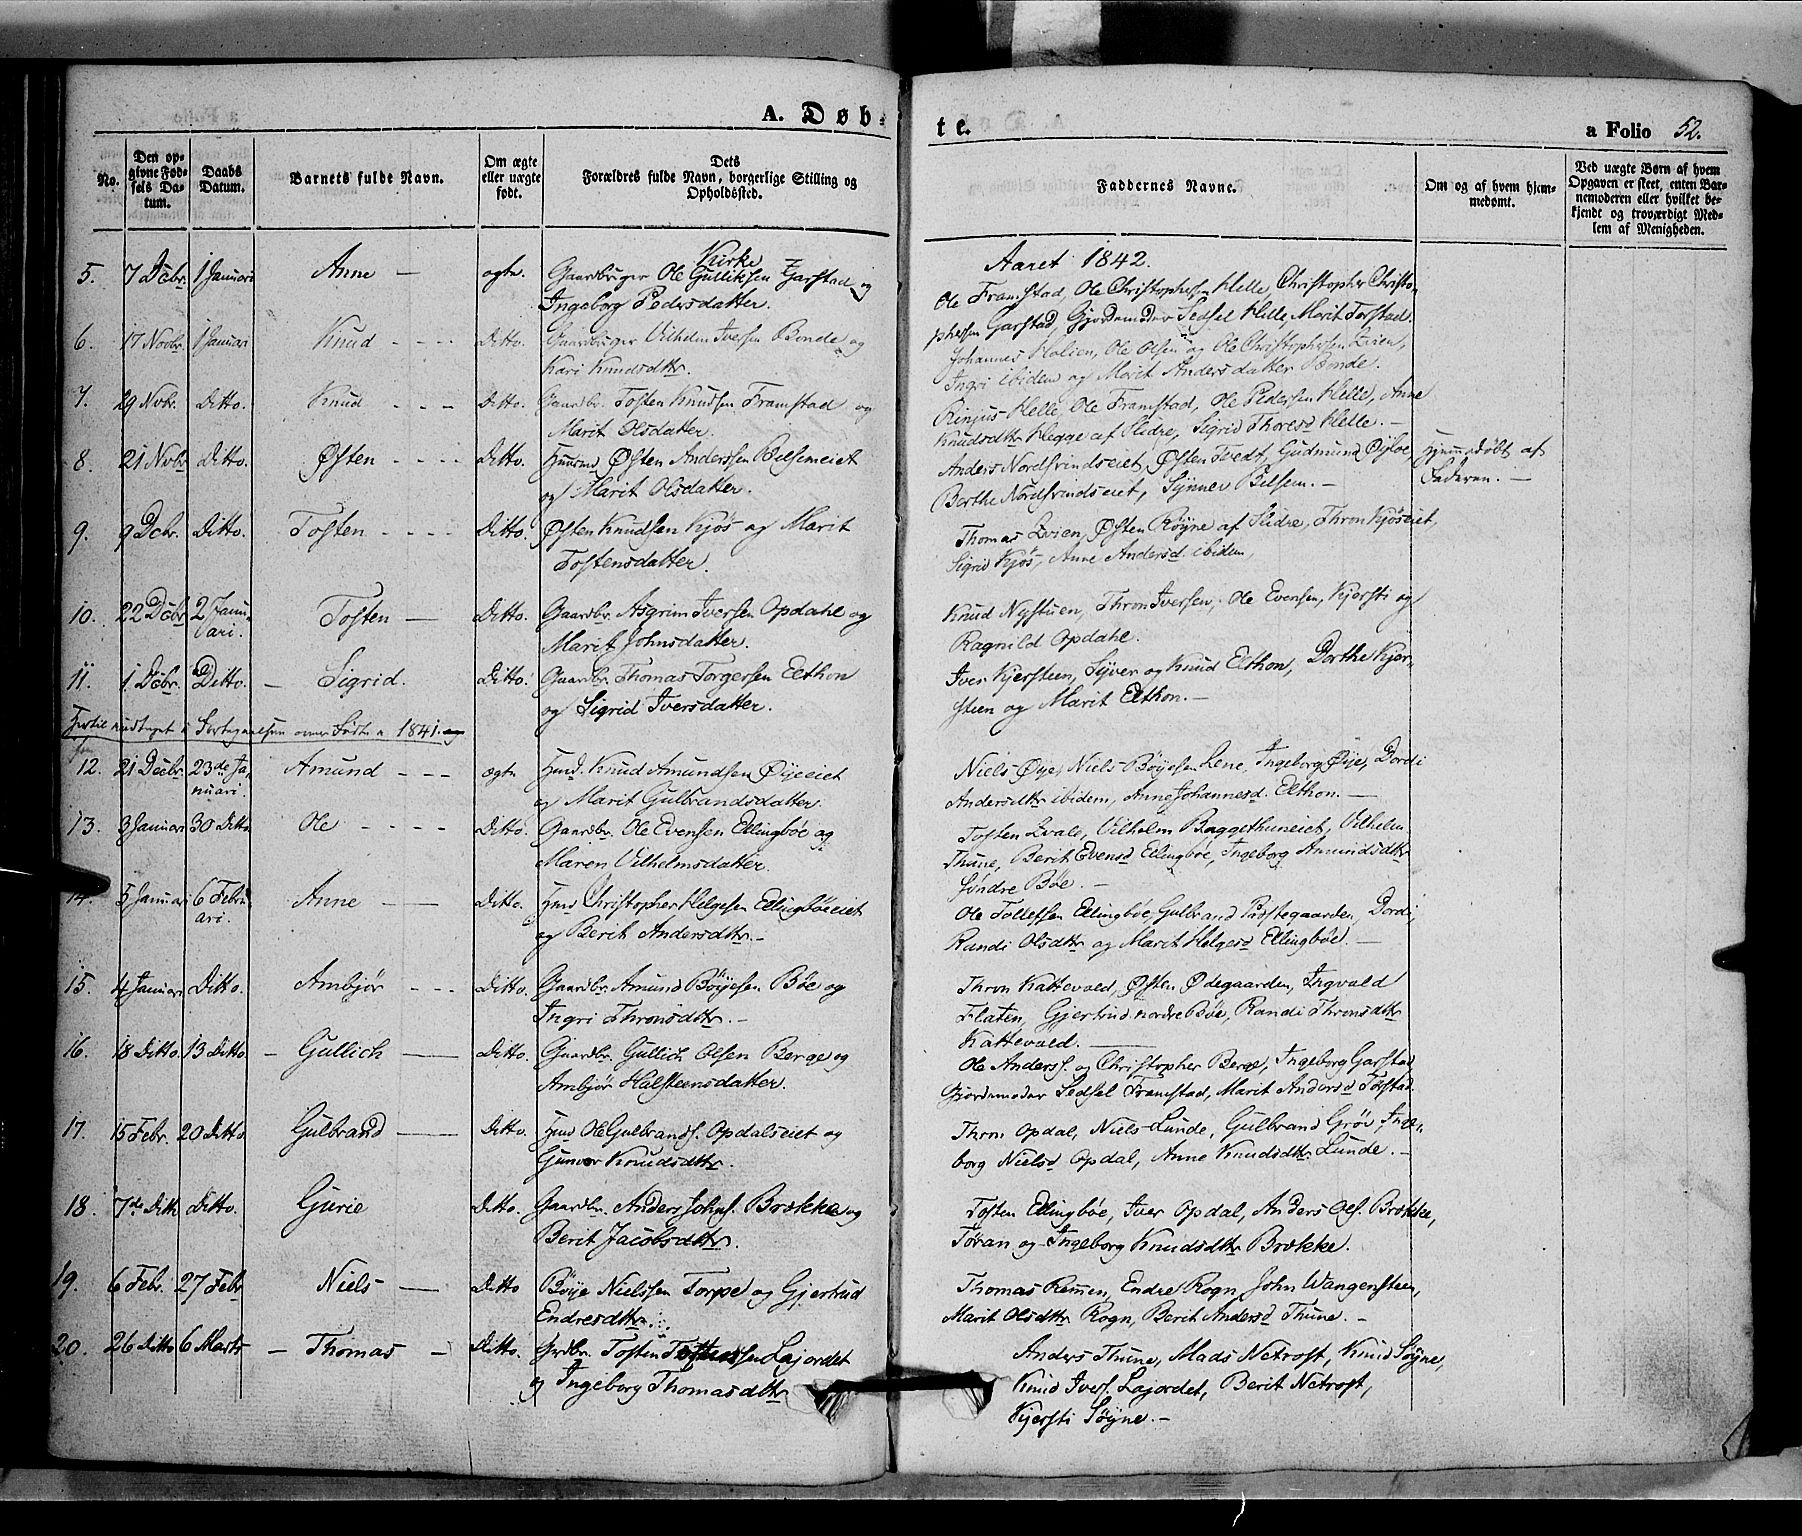 A. Døb-
te.
a Folio 52.
No.
Den op-
givne Fød-
sels Da-
tum.
Daabs
Datum.
Barnets fulde Navn.
Om ægte
eller uægte
født.
Dets
Forældres fulde Navn, borgerlige Stilling og
Opholdssted.
Faddernes Navne.
Om og af hvem hjem-
medømt.
Ved uægte Børn af hvem
Opgaven er skeet, enten Bar-
nemoderen eller hvilket be-
kjendt og troværdigt Med-
lem af Menigheden.
Aaret 1842.
5. 7 Dcbr. 1 Januari Anne — ægte. Gaardbruger Ole Gulliksen Kirke Garstad og
Ingeborg Pedersdatter.
Ole Framstad, Ole Christophersen Helle, Christopher Christo-
phersen Garstad, Gjordemoder Sedsel Helle, Marit Torstad.
6. 17 Novbr. 1 Januari Knud - - - - Ditto. Gaardbruger Vilhelm Iversen Bonde og
Kari Knudsdttr.
Johannes Holien, Ole Olsen og Ole Christophersen Zvien,
Ingri ibidem og Marit Andersdatter Bonde.
7. 29 Nvbr. Ditto. Knud - - - - Ditto. Gaardbr. Tosten Knudsen Framstad og
Marit Olsdatter.
Rinjus Helle, Ole Framstad, Ole Pedersen Helle, Anne
Knudsdttr Hegge af Slidre, Sigrid Thoresd Helle. —
8. 21 Nvbr Ditto. Østen - - - - Ditto. Huusmd Østen Anderssen Belsemeiet
og Marit Olsdatter.
Anders Nordfrindseiet, Østen Tvedt, Gudmund Øyloe
Berthe Nordfrindseiet, Synnev Belsem. —
Hjemmedøbt af
Faderen. —
9. 9 Dcbr. Ditto. Tosten - - - - Ditto. Østen Knudsen Kjøs og Marit
Tostensdatter.
Thomas Zvien, Østen Røyne af Slidre, Thron Kjøseiet,
Sigrid Kjøs, Anne Andersd. ibidem,
10. 22 Dcbr 2 Janu-
ari. Tosten — Ditto. Gaardbr. Asgrim Iversen Opdahl og
Marit Johnsdatter.
Knud Nystuen, Thron Iversen, Ole Evensen, Kjersti og
Ragnild Opdahl.
11. 1. Dcbr. Ditto. — Sigrid. Ditto. Gaardbr. Thomas Torgersen Elthon
og Sigrid Iversdatter.
Iver Kjersteen, Syver og Knud Elthon, Dorthe Kjer-
steen og Marit Elthon. —
Hertil Fortegnelsen over Fødte 1841.
12. 21 Dcbr. 23de Ja-
nuari. Amund - - - ægte Husmd. Knud Amundsen Øyeeiet
og Marit Gulbrandsdatter.
Niels Øye, Niels Bøyesen Lene, Ingeborg Øye, Dordi
Andersdttr ibidem, Anne Johannesd. Elthon. —
13. 3 Januari 30 Ditto Ole - - - - Ditto. Gaardbr. Ole Evensen Ellingbøe og
Maren Vilhelmsdatter.
Tosten Zvale, Vilhelm Baggethuneiet, Vilhelm
Thune, Berit Evensd Ellingbøe, Ingeborg Amundsdttr
Søndre Bøe. —
14. 5 Januari 6 Febru-
ari. Anne — Ditto. Husmd Christopher Helgesen Ellingbøeeiet
og Berit Andersdttr. —
Ole Tollefsen Ellingbøe, Gulbrand Præstegaarden, Dordi,
Randi Olsdttr og Marit Helgesd Ellingbøe. —
15. 4 Januari Ditto. Ambjør - - - Ditto. Gaardbr. Amund Bøyesen Bøe og
Ingri Thronsdttr. —
Thron Kattevold, Østen Ødegaarden, Ingvald
Flaten, Gjertrud nordre Bøe, Randi Thronsdttr
Kattevold. —
16. 18 Ditto. 13 Ditto — Gullich — Ditto. Gaardbr. Gullich Olsen Berge og
Ambjør Halsteensdatter.
Ole Anderss. og Christopher Berge, Ingeborg Garstad
Gjordemoder Sedsel Framstad, Marit Andersd Torstad.
17. 15 Febr. 20 Ditto Gulbrand — Ditto. Husmd Ole Gulbrands. Opdalseiet og
Gunvor Knudsdttr.
Thron Opdal, Niels Lunde, Gulbrand Grøv, Inge-
borg Nielsd Opdal, Anne Knudsdttr Lunde. —
18. 7de Ditto Ditto. Gurie Ditto. Gaardbr. Anders Johns. Brække og
Berit Jacobsdttr.
Tosten Ellingbøe, Iver Opdal, Anders Ols. Brække,
Tøran og Ingeborg Knudsdttr Brække.
19. 6 Febr. 27 Febr Niels — Ditto Bøye Nielssen Torpe og Gjertrud
Endresdttr.
Thomas Remen, Endre Rogn, John Wangensteen,
Marit Olsdttr Rogn, Berit Andersd Thune. —
20. 26 Ditto 6 Marts — Thomas — Ditto. Grdbr. Tosten Tostensen Lajordet
og Ingeborg Thomasdttr
Anders Thune, Mads Netrost, Knud Søyne,
Knud Ivers. Lajordet, Berit Netrost,
Kjersti Søyne. —